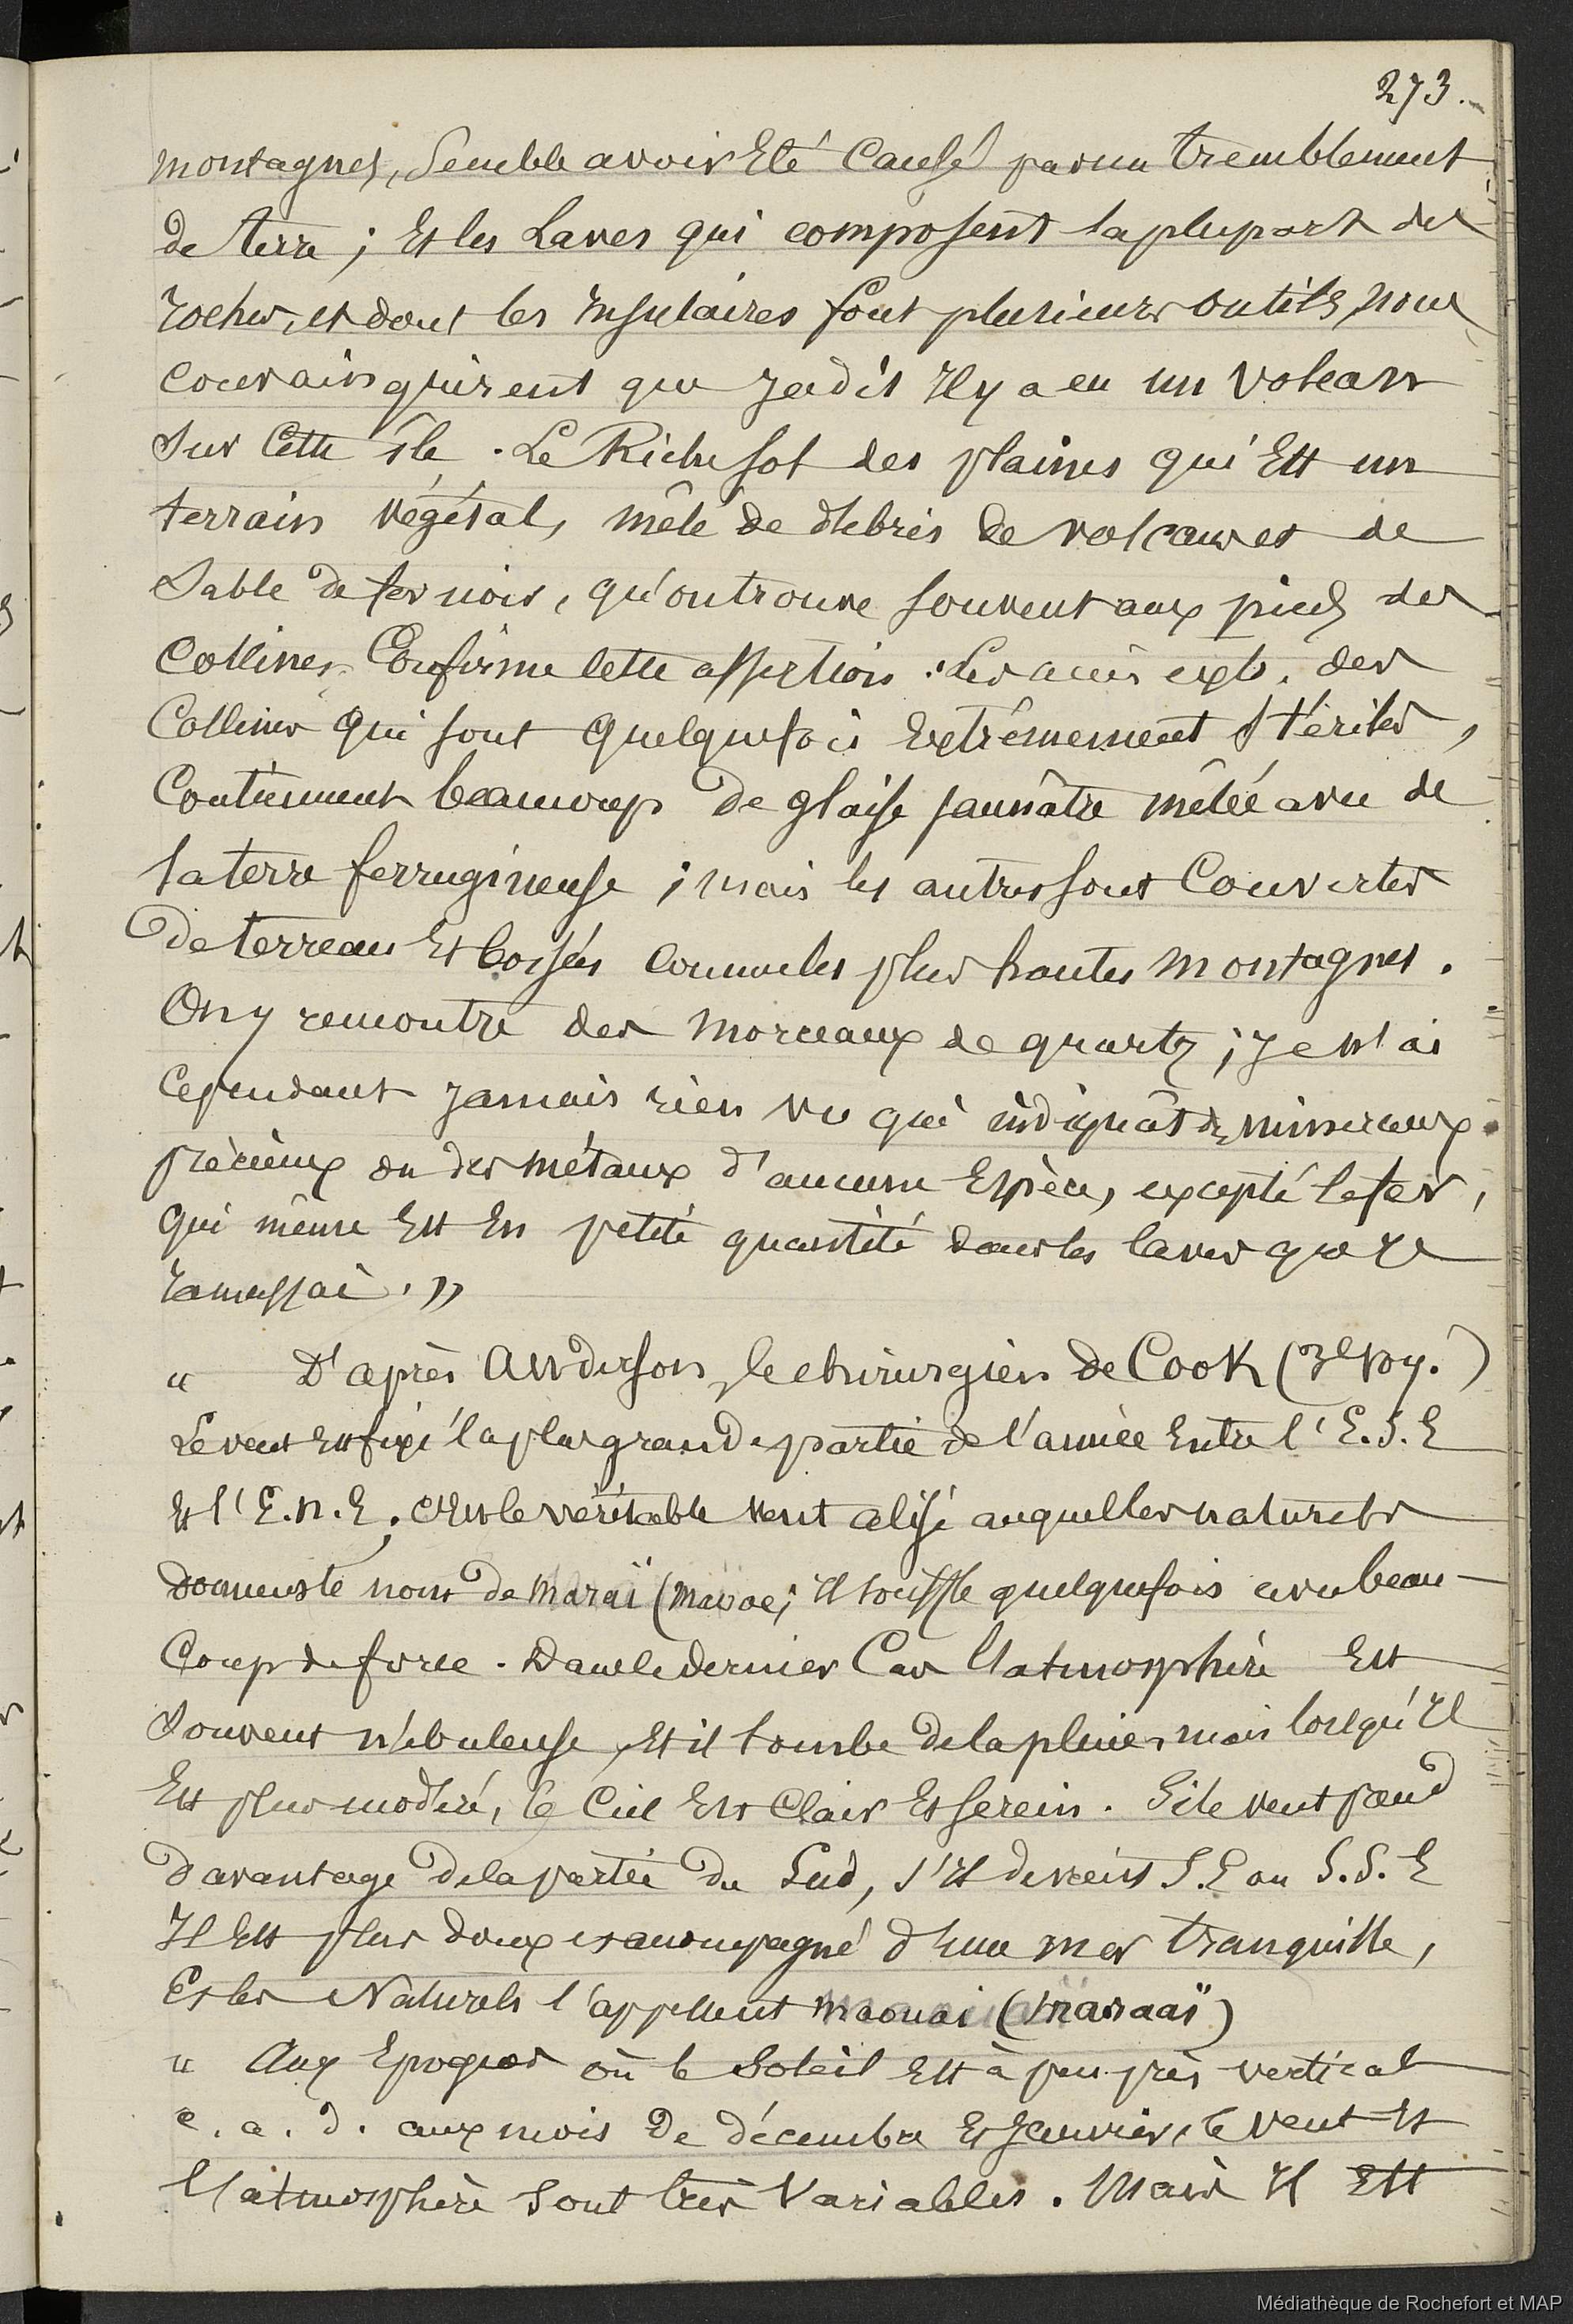 273.
montagnes, semble avoir Eté causé par un tremblement
de terre ; Et les Laves qui composent la plupart des
rochers, et dont les Insulaires font plusieurs outils, nous
convainquirent que Jadis Il y a eu un volcan
sur cette île . Le Riche sol des plaines qui Est un
terrain végétal, mêlé de débris de volcans et de
sable de fer noir, qu'on trouve souvent aux pieds des
Collines, Confirme cette assertion . Les Collines extr. des
Collines qui sont quelquefois Extrêmement stériles,
Contiennent beaucoup de glaise jaunâtre mêlée avec de
la terre ferrugineuse ; mais les autres sont Couvertes
de terreau Et boisées comme les plus hautes montagnes .
On y rencontre des morceaux de quartz ; Je n'ai
Cependant Jamais rien vu qui indiquât des minéraux
précieux ou des métaux d'aucune Espèce, excepté le fer,
qui même Est En petite quantité dans les laves que Je
ramassai . »
" D'après Anderson, le chirurgien de Cook (3e Voy.)
Le vent Est fixé la plus grande partie de l'année Entre l'E.S.E
Et l'E.N.E ; c'est le véritable vent alisé auquel les naturels
donnent le nom de Maraï (Marae ; Il souffle quelquefois avec beau-
Coup de force . Dans le dernier Cas l'atmosphère Est
souvent nébuleuse, Et il tombe de la pluie, mais lorsqu'Il
Est plus modéré, le Ciel Est Clair Et serein . Si le vent prend
davantage de la partie du Sud, s'Il devient S.E ou S.S.E
Il Est plus doux et accompagné d'une mer tranquille,
Et les Naturels l'appellent maouai (maraaï)
" Aux Epoques où le Soleil Est à peu près vertical
c. a. d. aux mois de décembre Et Janvier, le vent Et
l'atmosphère sont très Variables . Mais Il Est
Médiathèque de Rochefort et MAP